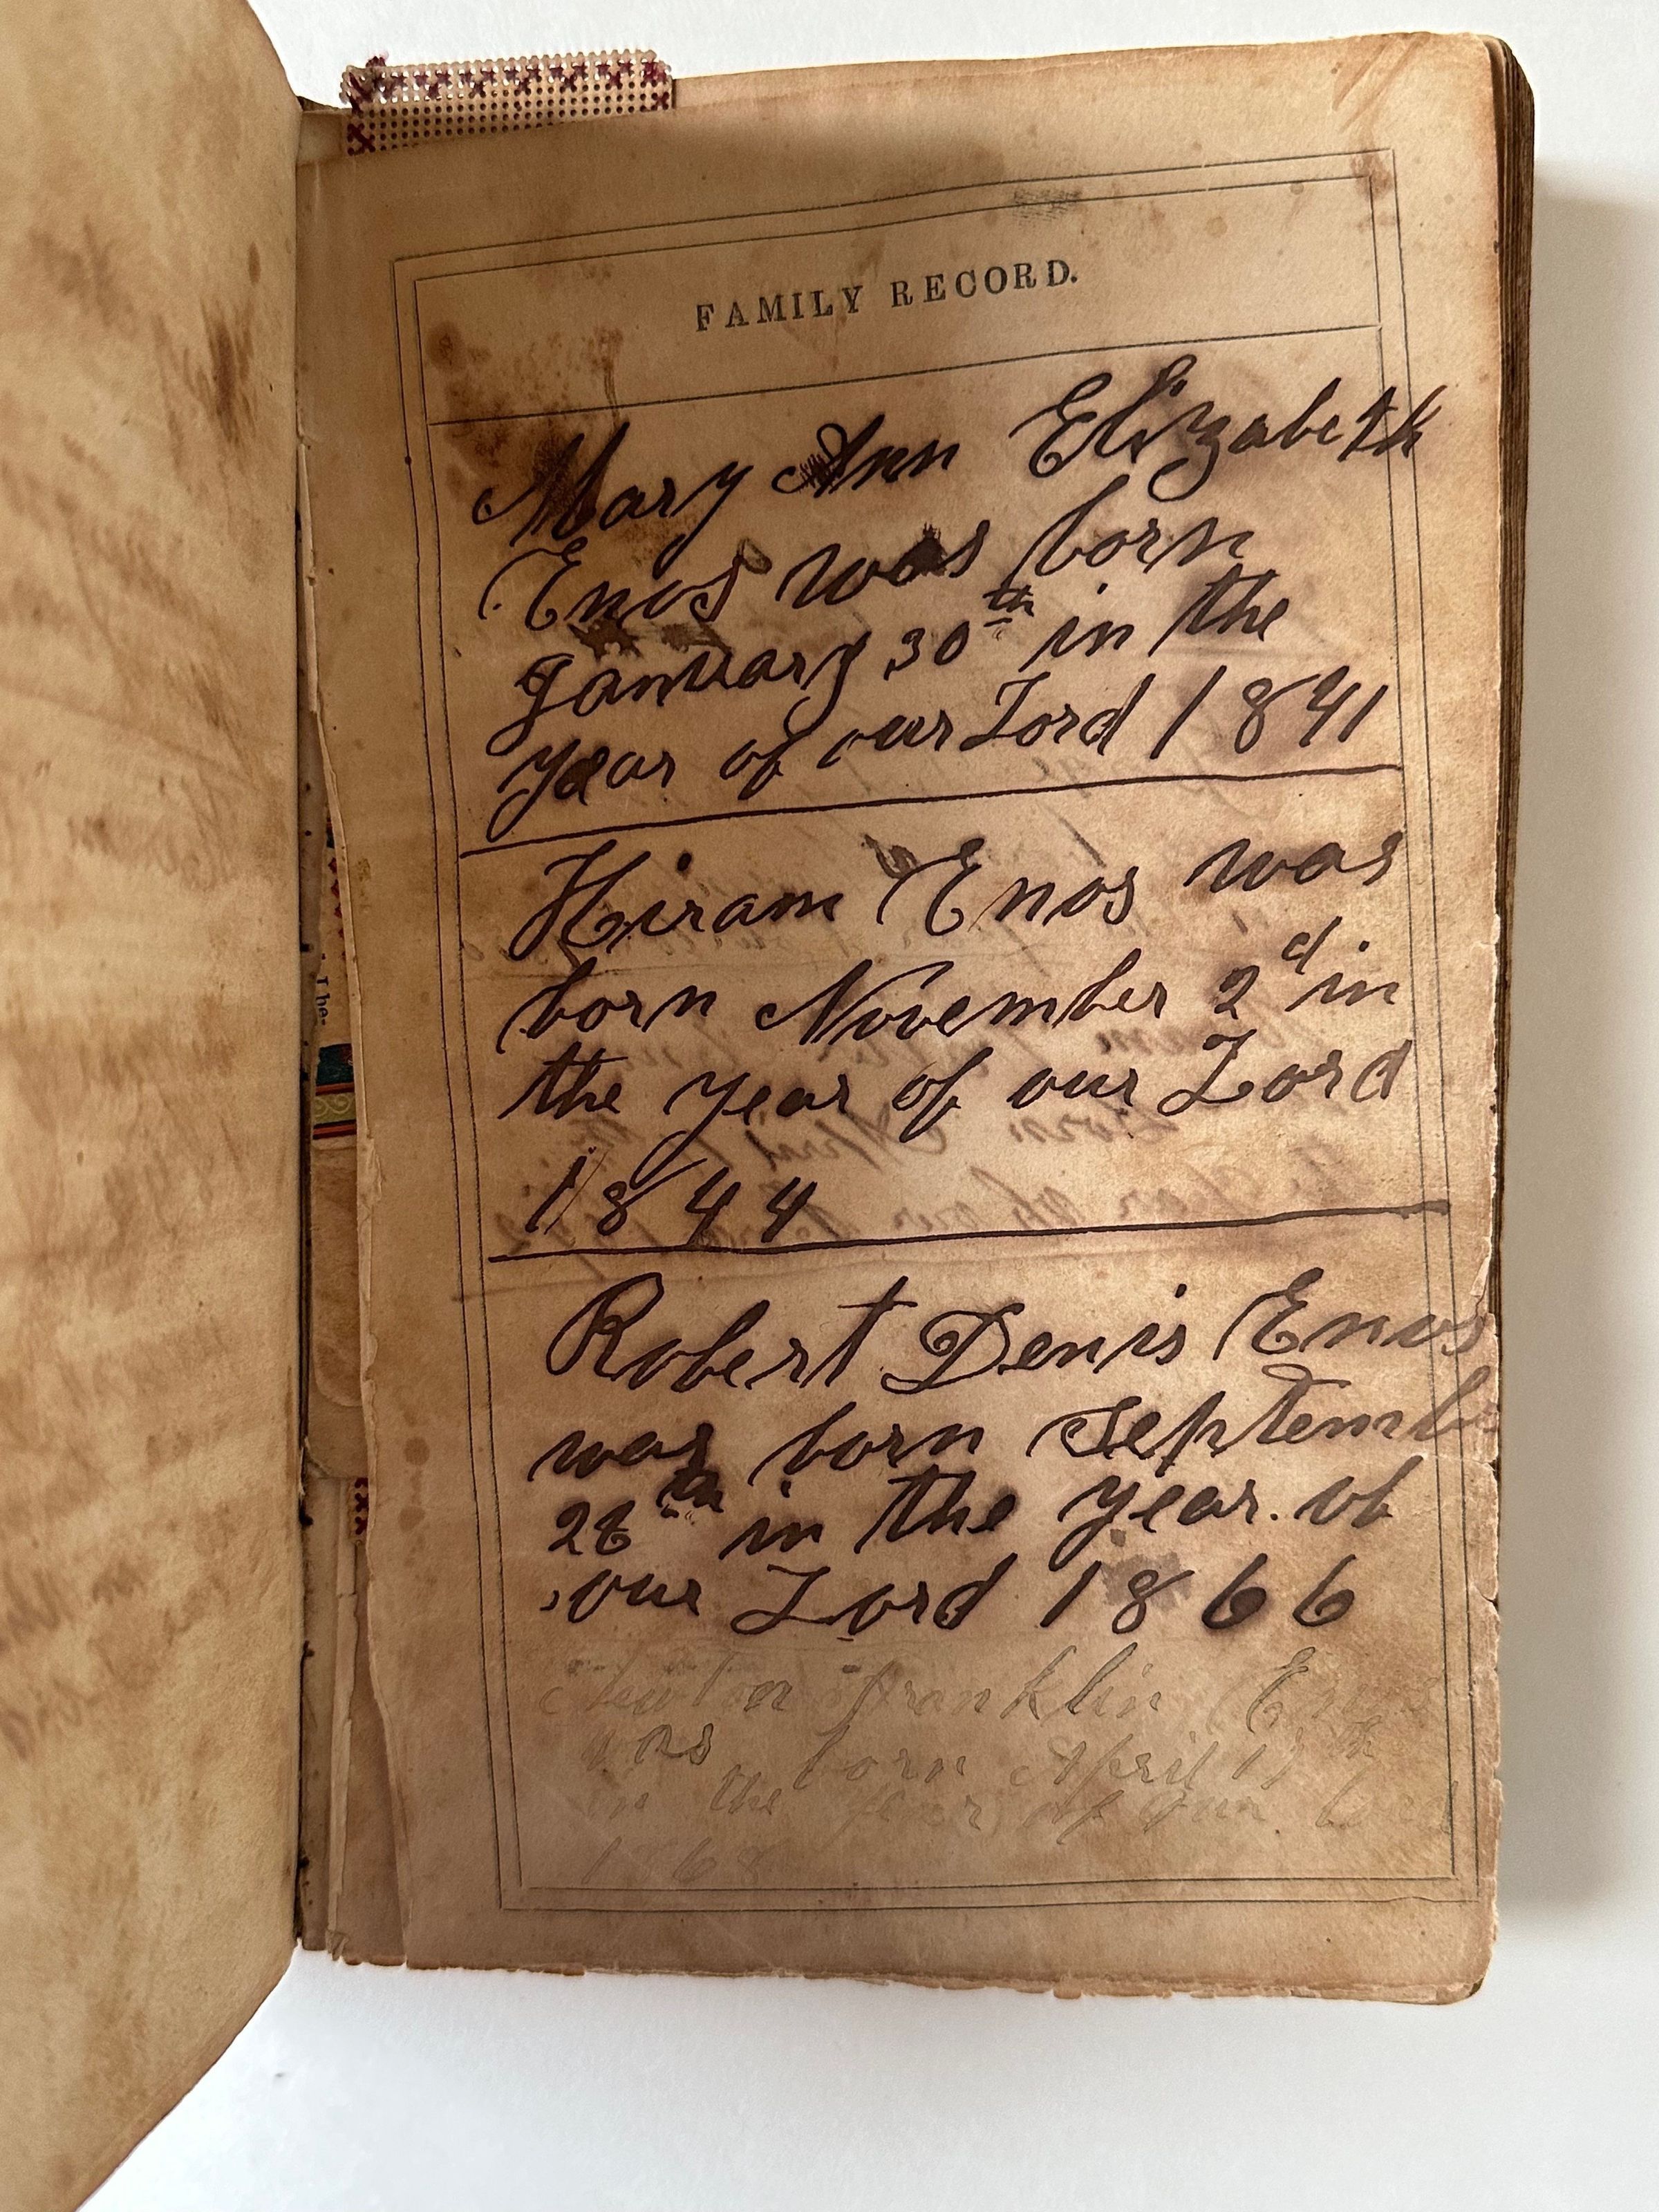 FAMILY RECORD.
Mary Ann Elizabeth
Enos was born
January 30th in the
year of our Lord 1841
Hiram Enos was
born November 2d in
the year of our Lord
1844
Robert Denis Enos
was born Septemb
28th in the year. of
our Lord 1866
Franklin Enos
was born April
in the year of our Lord